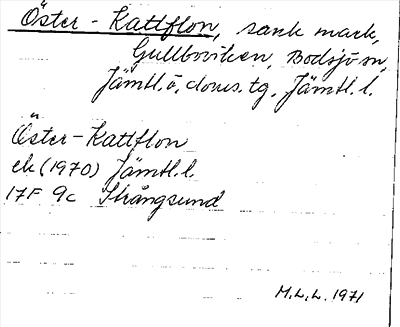 Öster-Kattflon, sank mark,
Gullboviken, Bodsjö sn,
Jämtl. ö. doms. tg. Jämtl. l.
Öster-Kattflon
ek (1970) Jämtl. l.
17F 9c Strångsund
M.L.L. 1971